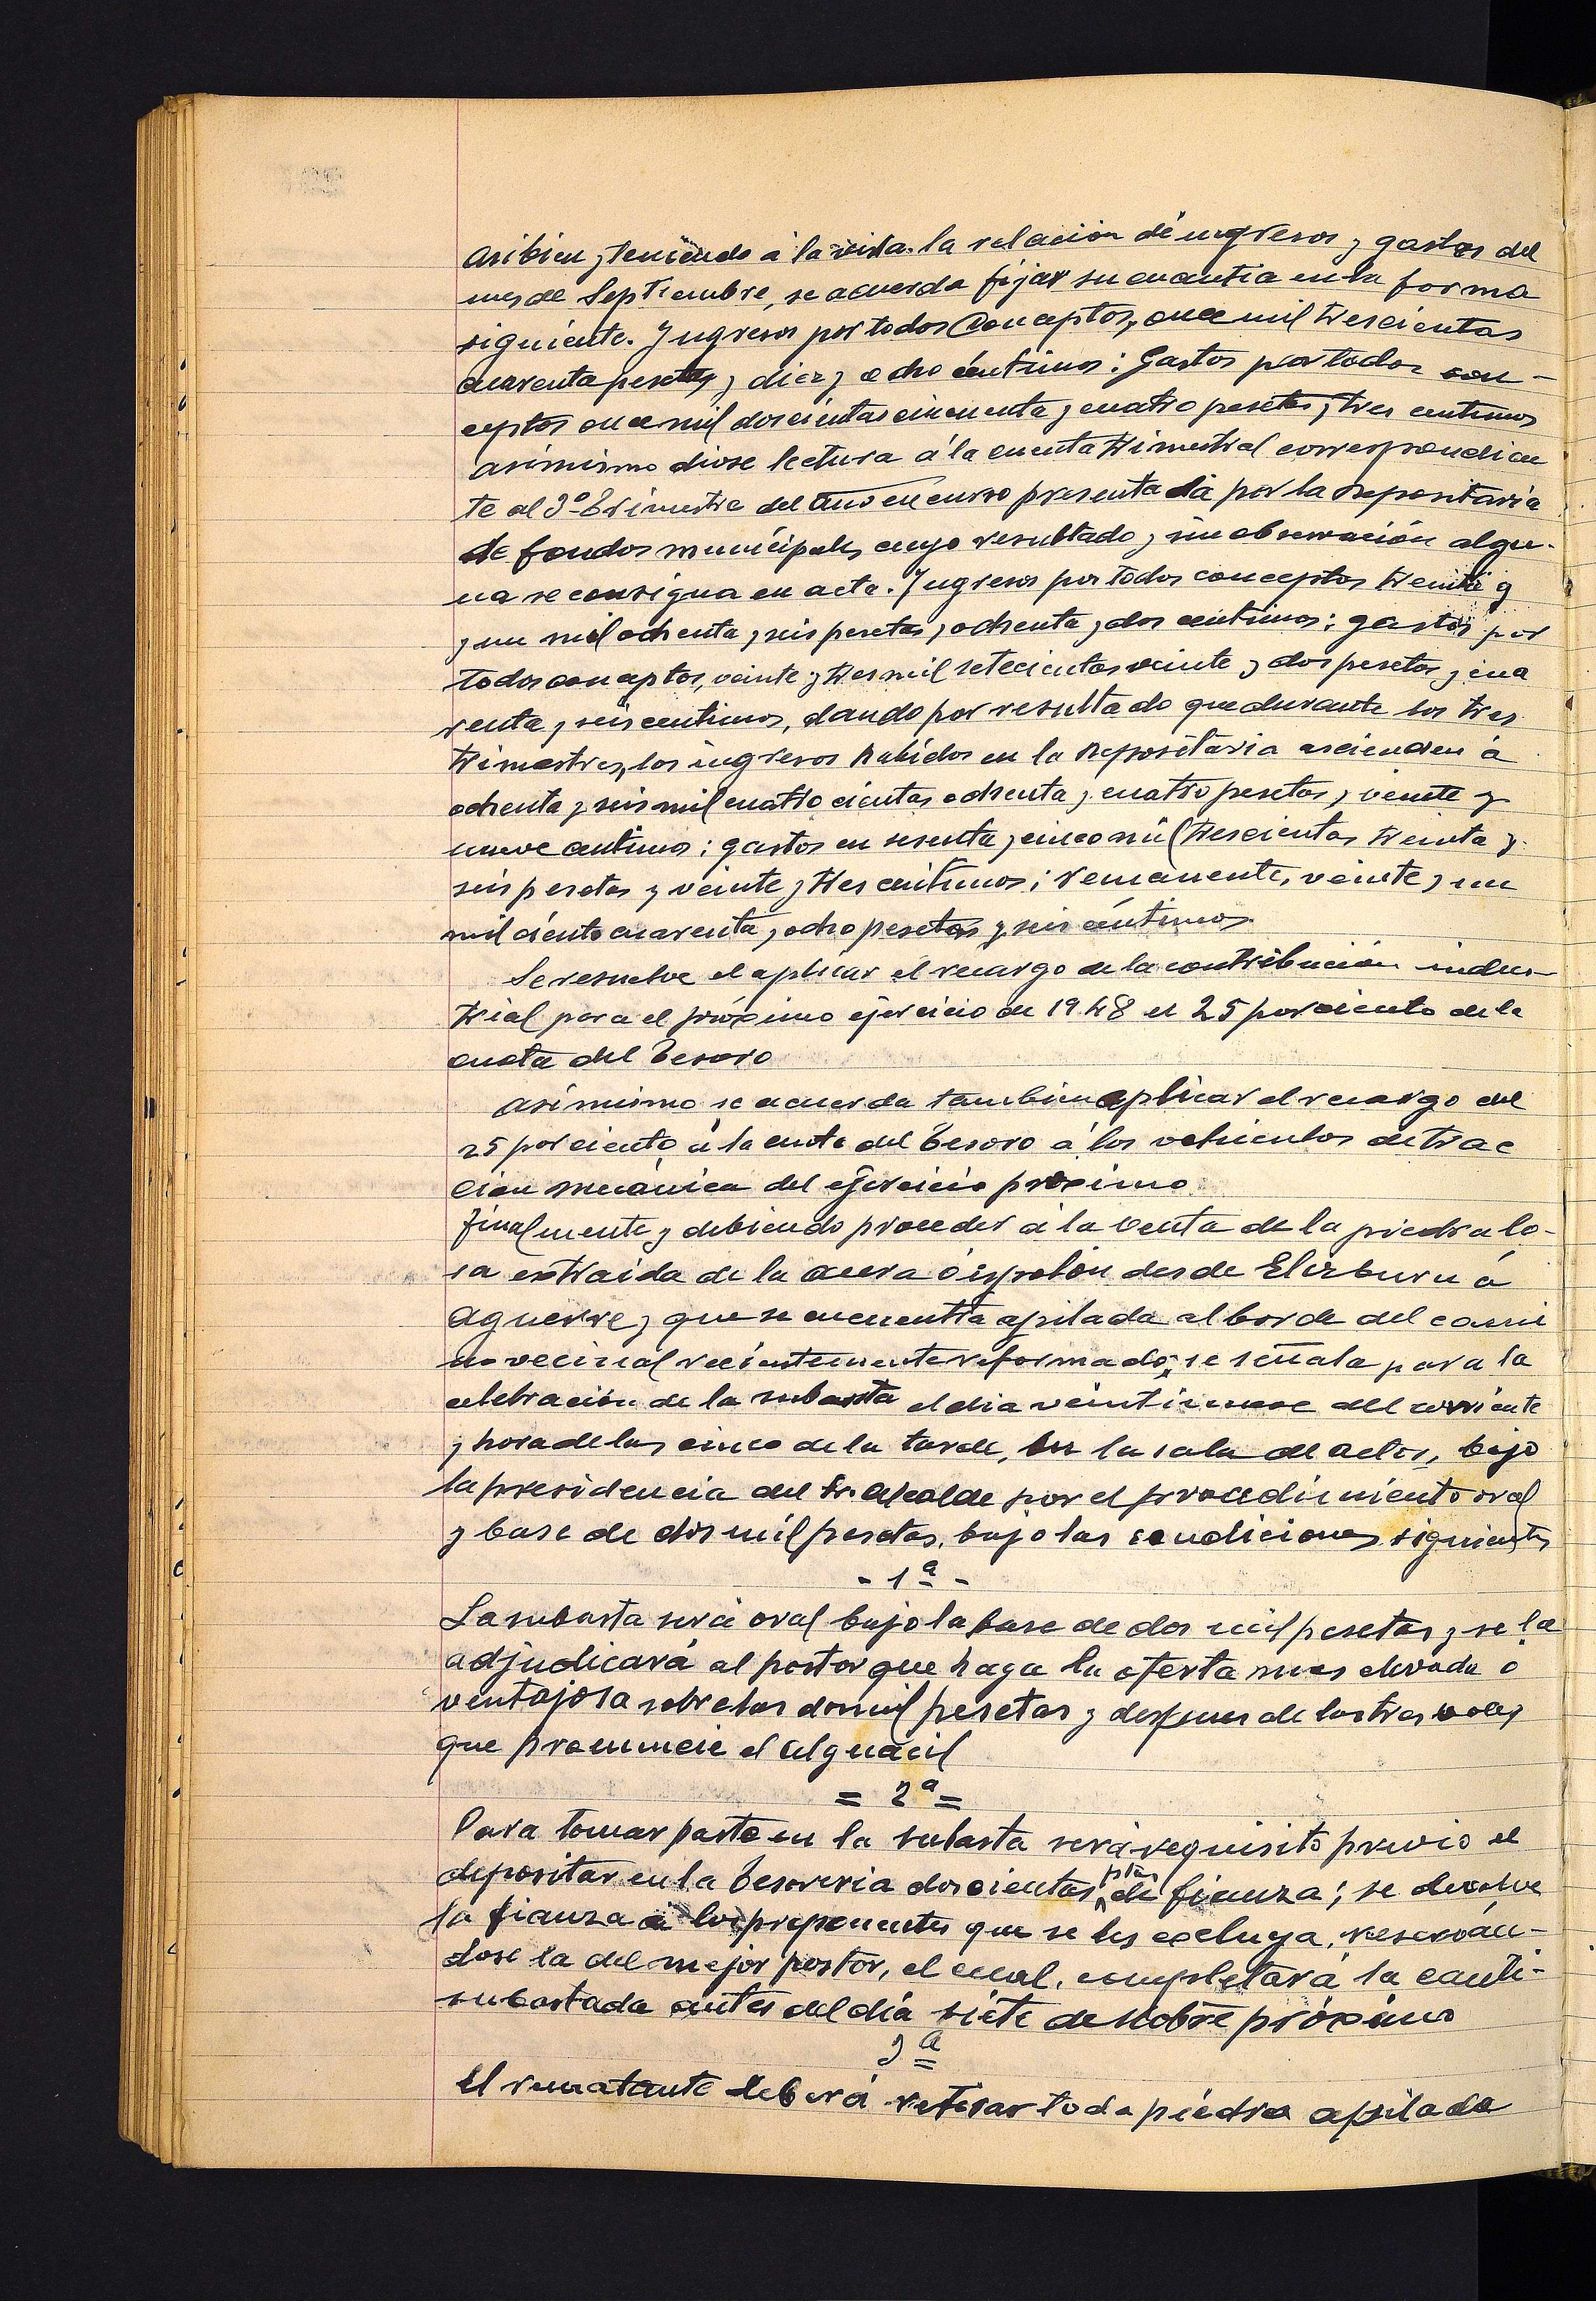 Asibien, teniendo á la vista la relación de ingresos y gastos del
mes de Septiembre, se acuerda fijar su cuantia en la forma
siguiente. Ingresos por todos conceptos, once mil trescientas
cuarenta pesetas y diez y ocho céntimos: Gastos por todos con-
ceptos once mil doscientas cincuenta y cuatro pesetas y tres centimos
asimismo diose lectura á la cuenta trimestral correspondien
te al 3º Trimestre del año en curso presentada por la Depositaria
de fondos municipales, cuyo resultado y sin observación algu-
na se consigna en acta. Ingresos por todos conceptos treinta y
y un mil ochenta y seis pesetas y ochenta y dos centimos: gastos por
todos conceptos, veinte y tres mil setecientas veinte y dos pesetas y cua
renta y seis centimos, dando por resultado que durante los tres
trimestres, los ingresos habidos en la Depositaria ascienden á
ochenta y seis mil cuatro cientas ochenta y cuatro pesetas y veinte y
nueve centimos: gastos en sesenta y cinco mil trescientas treinta y
seis pesetas y veinte y tres centimos; remanente, veinte y un
mil ciento cuarenta y ocho pesetas y seis céntimos.
Se resuelve el aplicar el recargo de la contribución indus-
trial para el próximo ejercicio de 1948 el 25 por ciento de la
cuota del Tesoro
Asimismo se acuerda tambien aplicar el recargo del
25 por ciento á la cuota del Tesoro á los vehiculos de trac
cion mecánica del ejercicio proximo.
Finalmente y debiendo proceder á la venta de la piedra lo-
sa extraida de la acera ó espolón desde Elizburu á
Aguerre, que se encuentra apilada al borde del cami
no vecinal recientemente reformado, se señala para la
celebración de la subasta el dia veintinueve del corriente
y hora de las cinco de la tarde, en la sala de actos, bajo
la presidencia del Sr. Alcalde por el procedimiento oral
y base de dos mil pesetas, bajo las condiciones siguientes
- 1ª -
La subasta será oral bajo la base de dos mil pesetas y se la
adjudicará al postor que haga la oferta mas elevada o
ventajosa sobre las dos mil pesetas y despues de las tres voces
que pronuncie el alguacil
= 2ª =
Para tomar parte en la subasta será requisito previo el
depositar en la Tesoreria doscientas ptas de fianza; se devolve
la fianza á los proponentes que se les excluya, reserván-
dose la del mejor postor, el cual, completará la canti-
subastada antes del día siete de Nobre próximo
3ª
El rematante deberá retirar toda piedra apilada